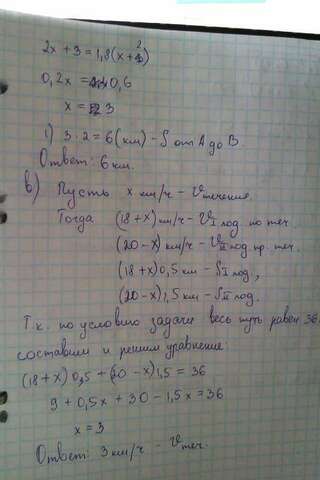 2x + 3 = 1,8(x+2)
0,2x = 0,6
x = 3
1) 3·2 = 6(км) – S от А до В
Ответ: 6 км.
в) Пусть x км/ч – Vтечения.
Тогда (18+x) км/ч – VI лод. по теч.
(20–x) км/ч – VII лод. пр. теч.
(18+x)0,5 км – SI лод.,
(20–x)1,5 км – SII лод.
Т.к. по условию задачи весь путь равен 36,
составим и решим уравнение:
(18+x)0,5 + (20–x)1,5 = 36
9 + 0,5x + 30 – 1,5x = 36
x = 3
Ответ: 3 км/ч – Vтеч.